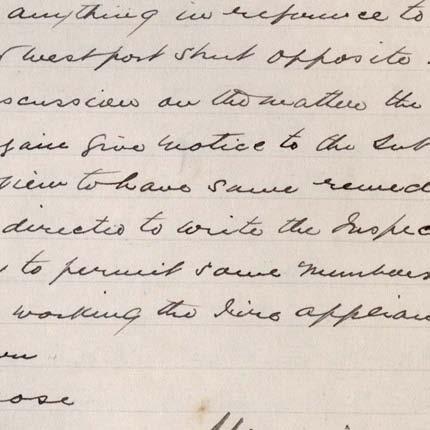 anything in reference to
Westport Shut opposite
scussion on the matter the
gain give notice to the Sub
view to have same remed
directio to write the Inspec
to permit some members
working the Fire applian
ose